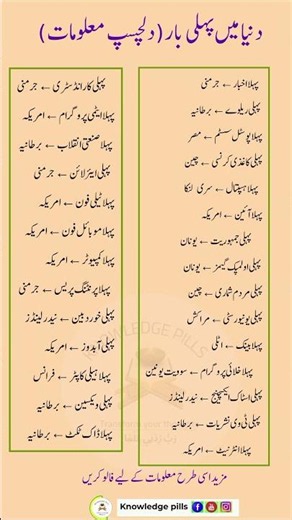 دنیا میں پہلی بار (دلچسپ معلومات)
پہلا اخبار ← جرمنی
پہلی ریلوے ← برطانیہ
پہلا پوسٹل سسٹم ← مصر
پہلی کاغذی کرنسی ← چین
پہلا ہسپتال ← سری لنکا
پہلا آئین ← امریکہ
پہلی جمہوریت ← یونان
پہلی اولمپک گیمز ← یونان
پہلی مردم شماری ← چین
پہلی یونیورسٹی ← مراکش
پہلا بینک ← اٹلی
پہلا خلائی پروگرام ← سوویت یونین
پہلی اسٹاک ایکسچینج ← نیدرلینڈز
پہلی ٹی وی نشریات ← برطانیہ
پہلا انٹرنیٹ ← امریکہ
پہلی کار انڈسٹری ← جرمنی
پہلا ایٹمی پروگرام ← امریکہ
پہلا صنعتی انقلاب ← برطانیہ
پہلی ایئر لائن ← جرمنی
پہلا ٹیلی فون ← امریکہ
پہلا موبائل فون ← امریکہ
پہلا کمپیوٹر ← امریکہ
پہلا پرنٹنگ پریس ← جرمنی
پہلی خوردبین ← نیدرلینڈز
پہلی آبدوز ← امریکہ
پہلا ہیلی کاپٹر ← فرانس
پہلی ویکسین ← برطانیہ
پہلا ڈاک ٹکٹ ← برطانیہ
KNOWLEDGE PILLS
مزید اسی طرح معلومات کے لیے فالو کریں
Knowledge pills